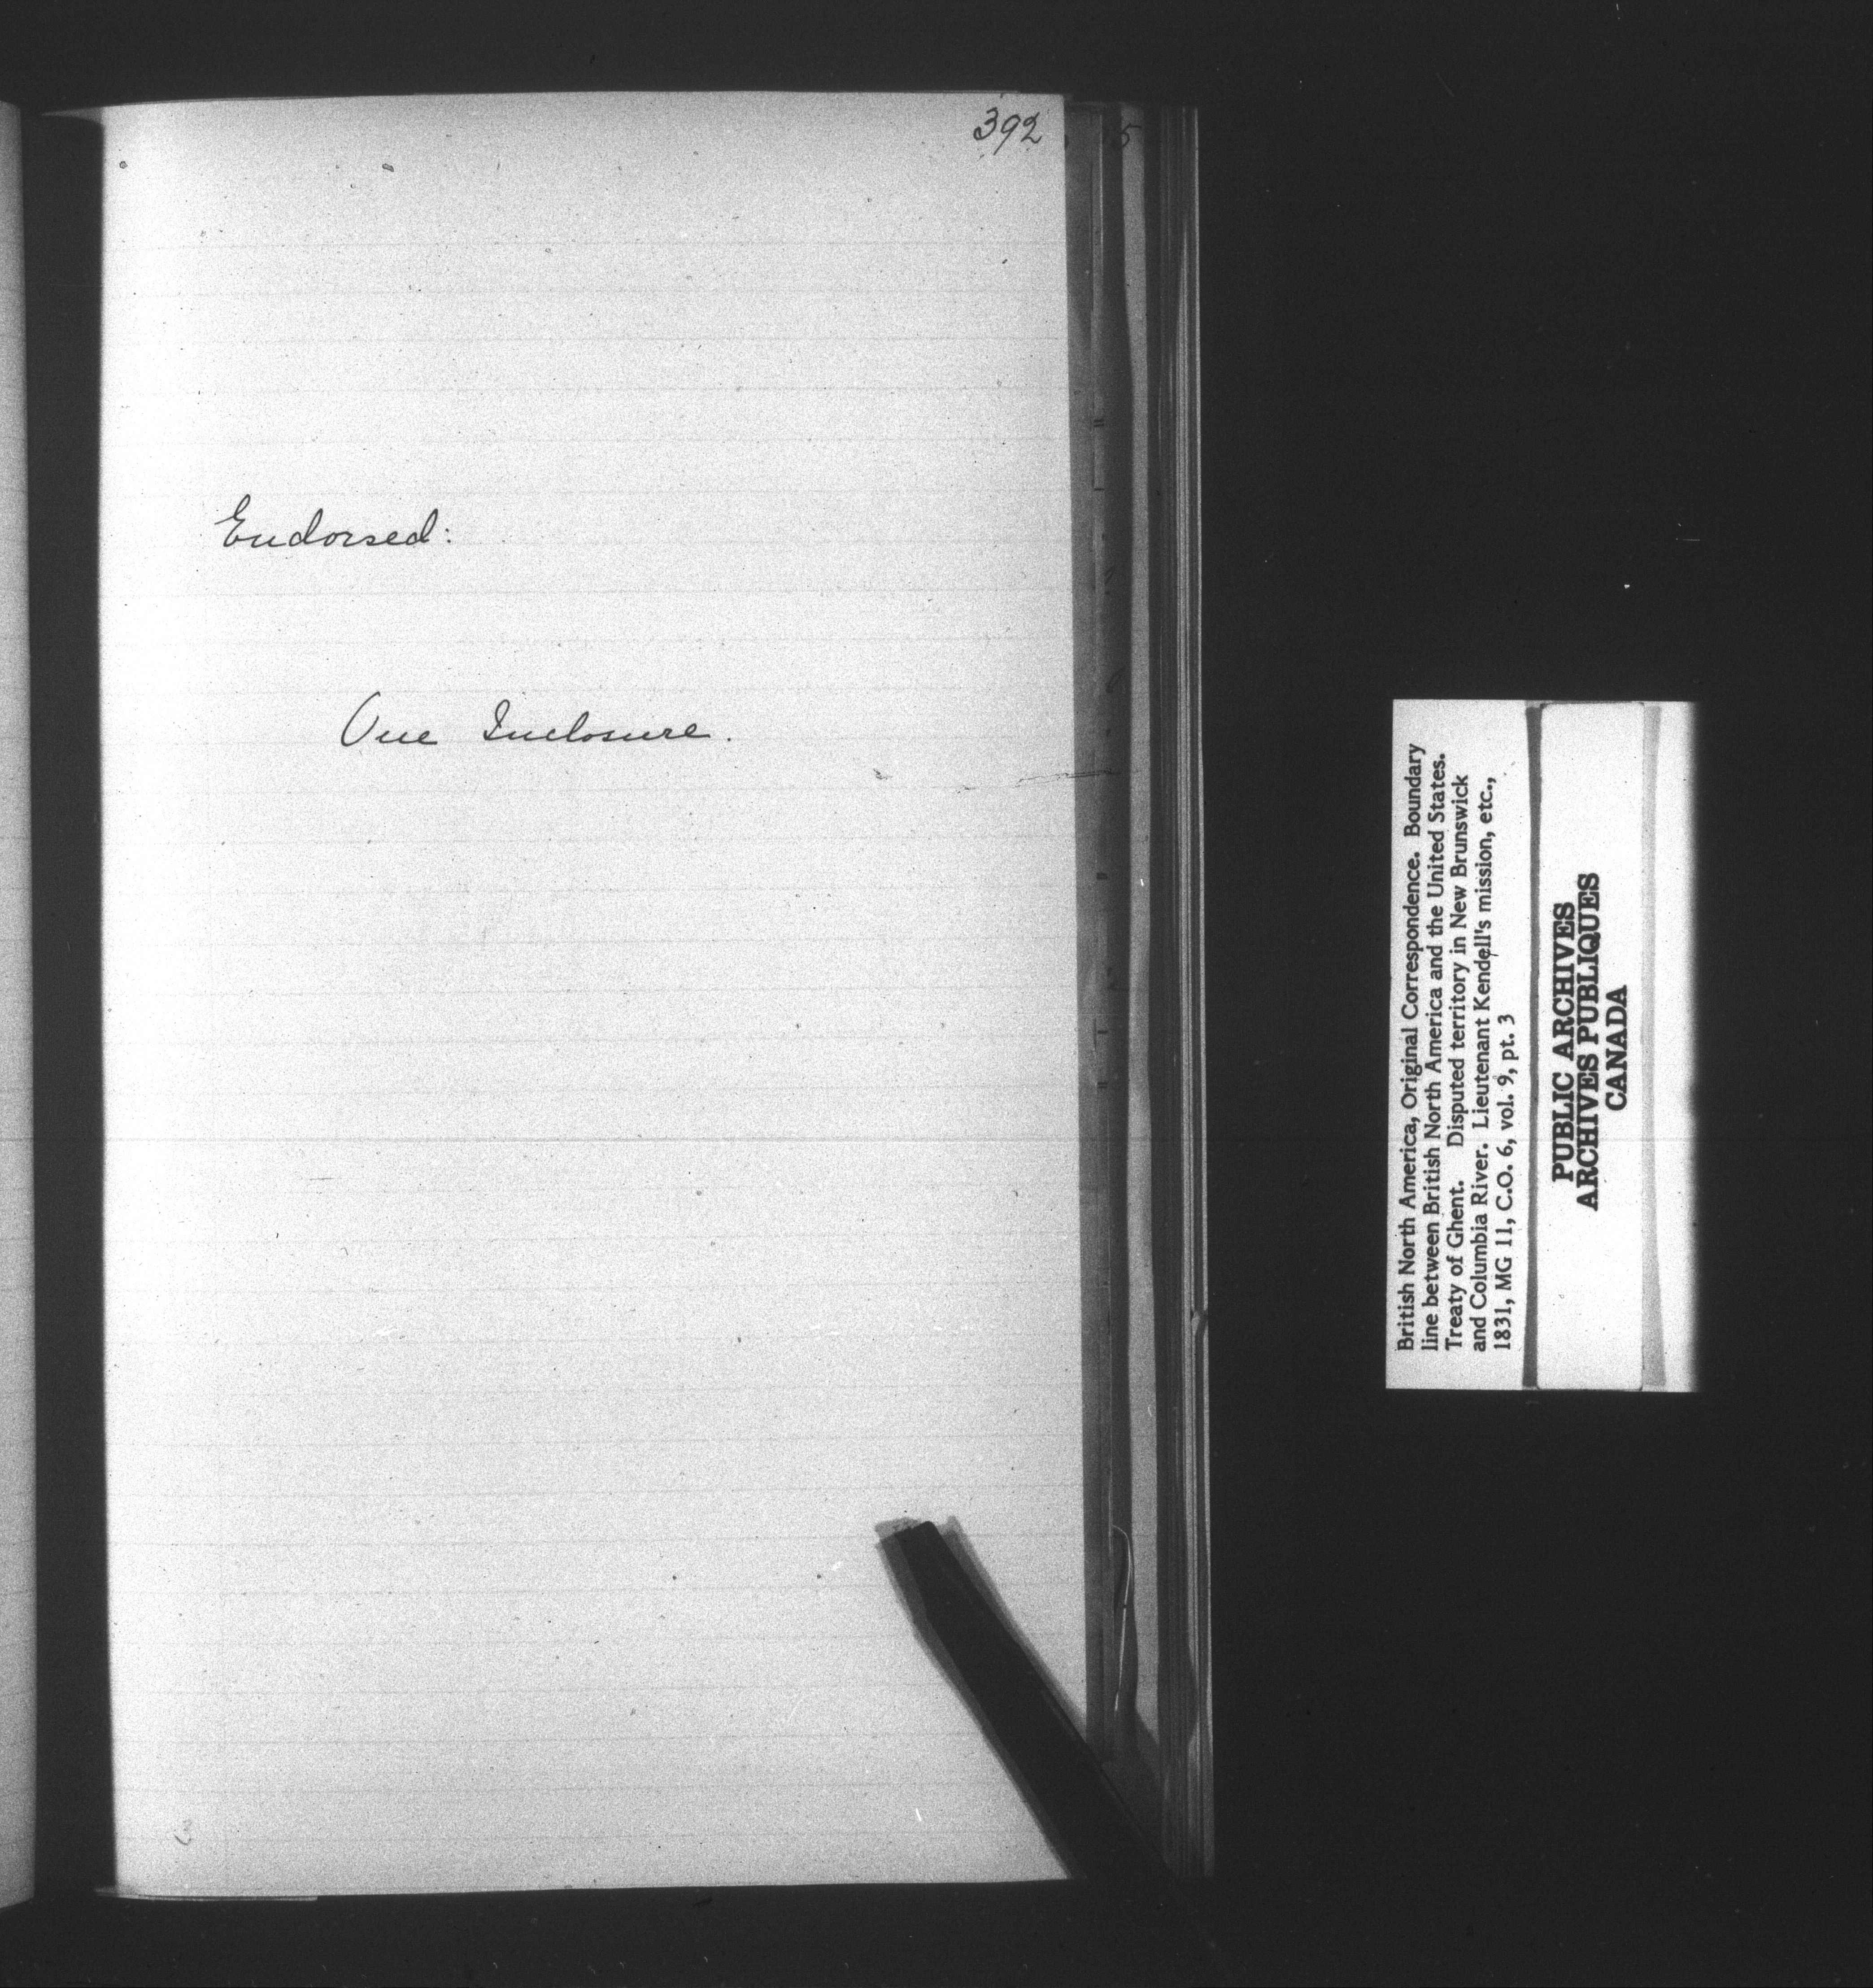 392
Endorsed:
One Inclosure.
British North America, Original Correspondence. Boundary
line between British North America and the United States.
Treaty of Ghent. Disputed territory in New Brunswick
and Columbia River. Lieutenant Kendell's mission, etc.,
1831, MG 11, C.O. 6, vol. 9, pt. 3
PUBLIC ARCHIVES
ARCHIVES PUBLIQUES
CANADA